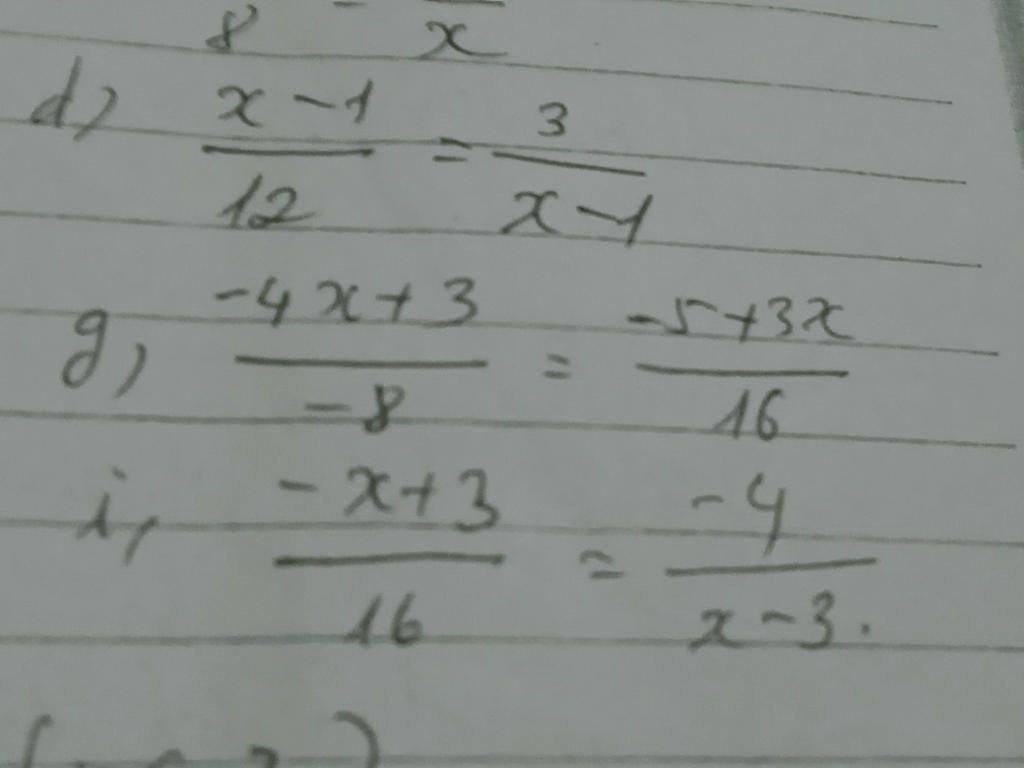 8 - x
d) x - 1 / 12 = 3 / x - 1
g, -4x + 3 / -8 = -5 + 3x / 16
i, -x + 3 / 16 = -4 / x - 3.